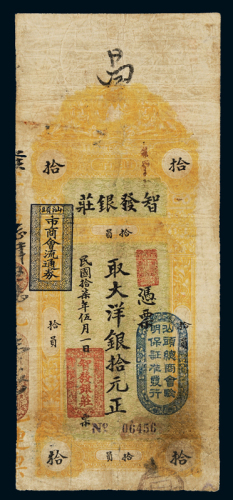 昌
拾 拾
莊銀發智
拾員
憑票
取大洋銀拾元正
民國拾柒年伍月一日
票
汕頭
市商會流通券
汕頭總商會驗
明保証准發行
智發銀莊
拾員
拾員
No 06456
拾 拾
拾員